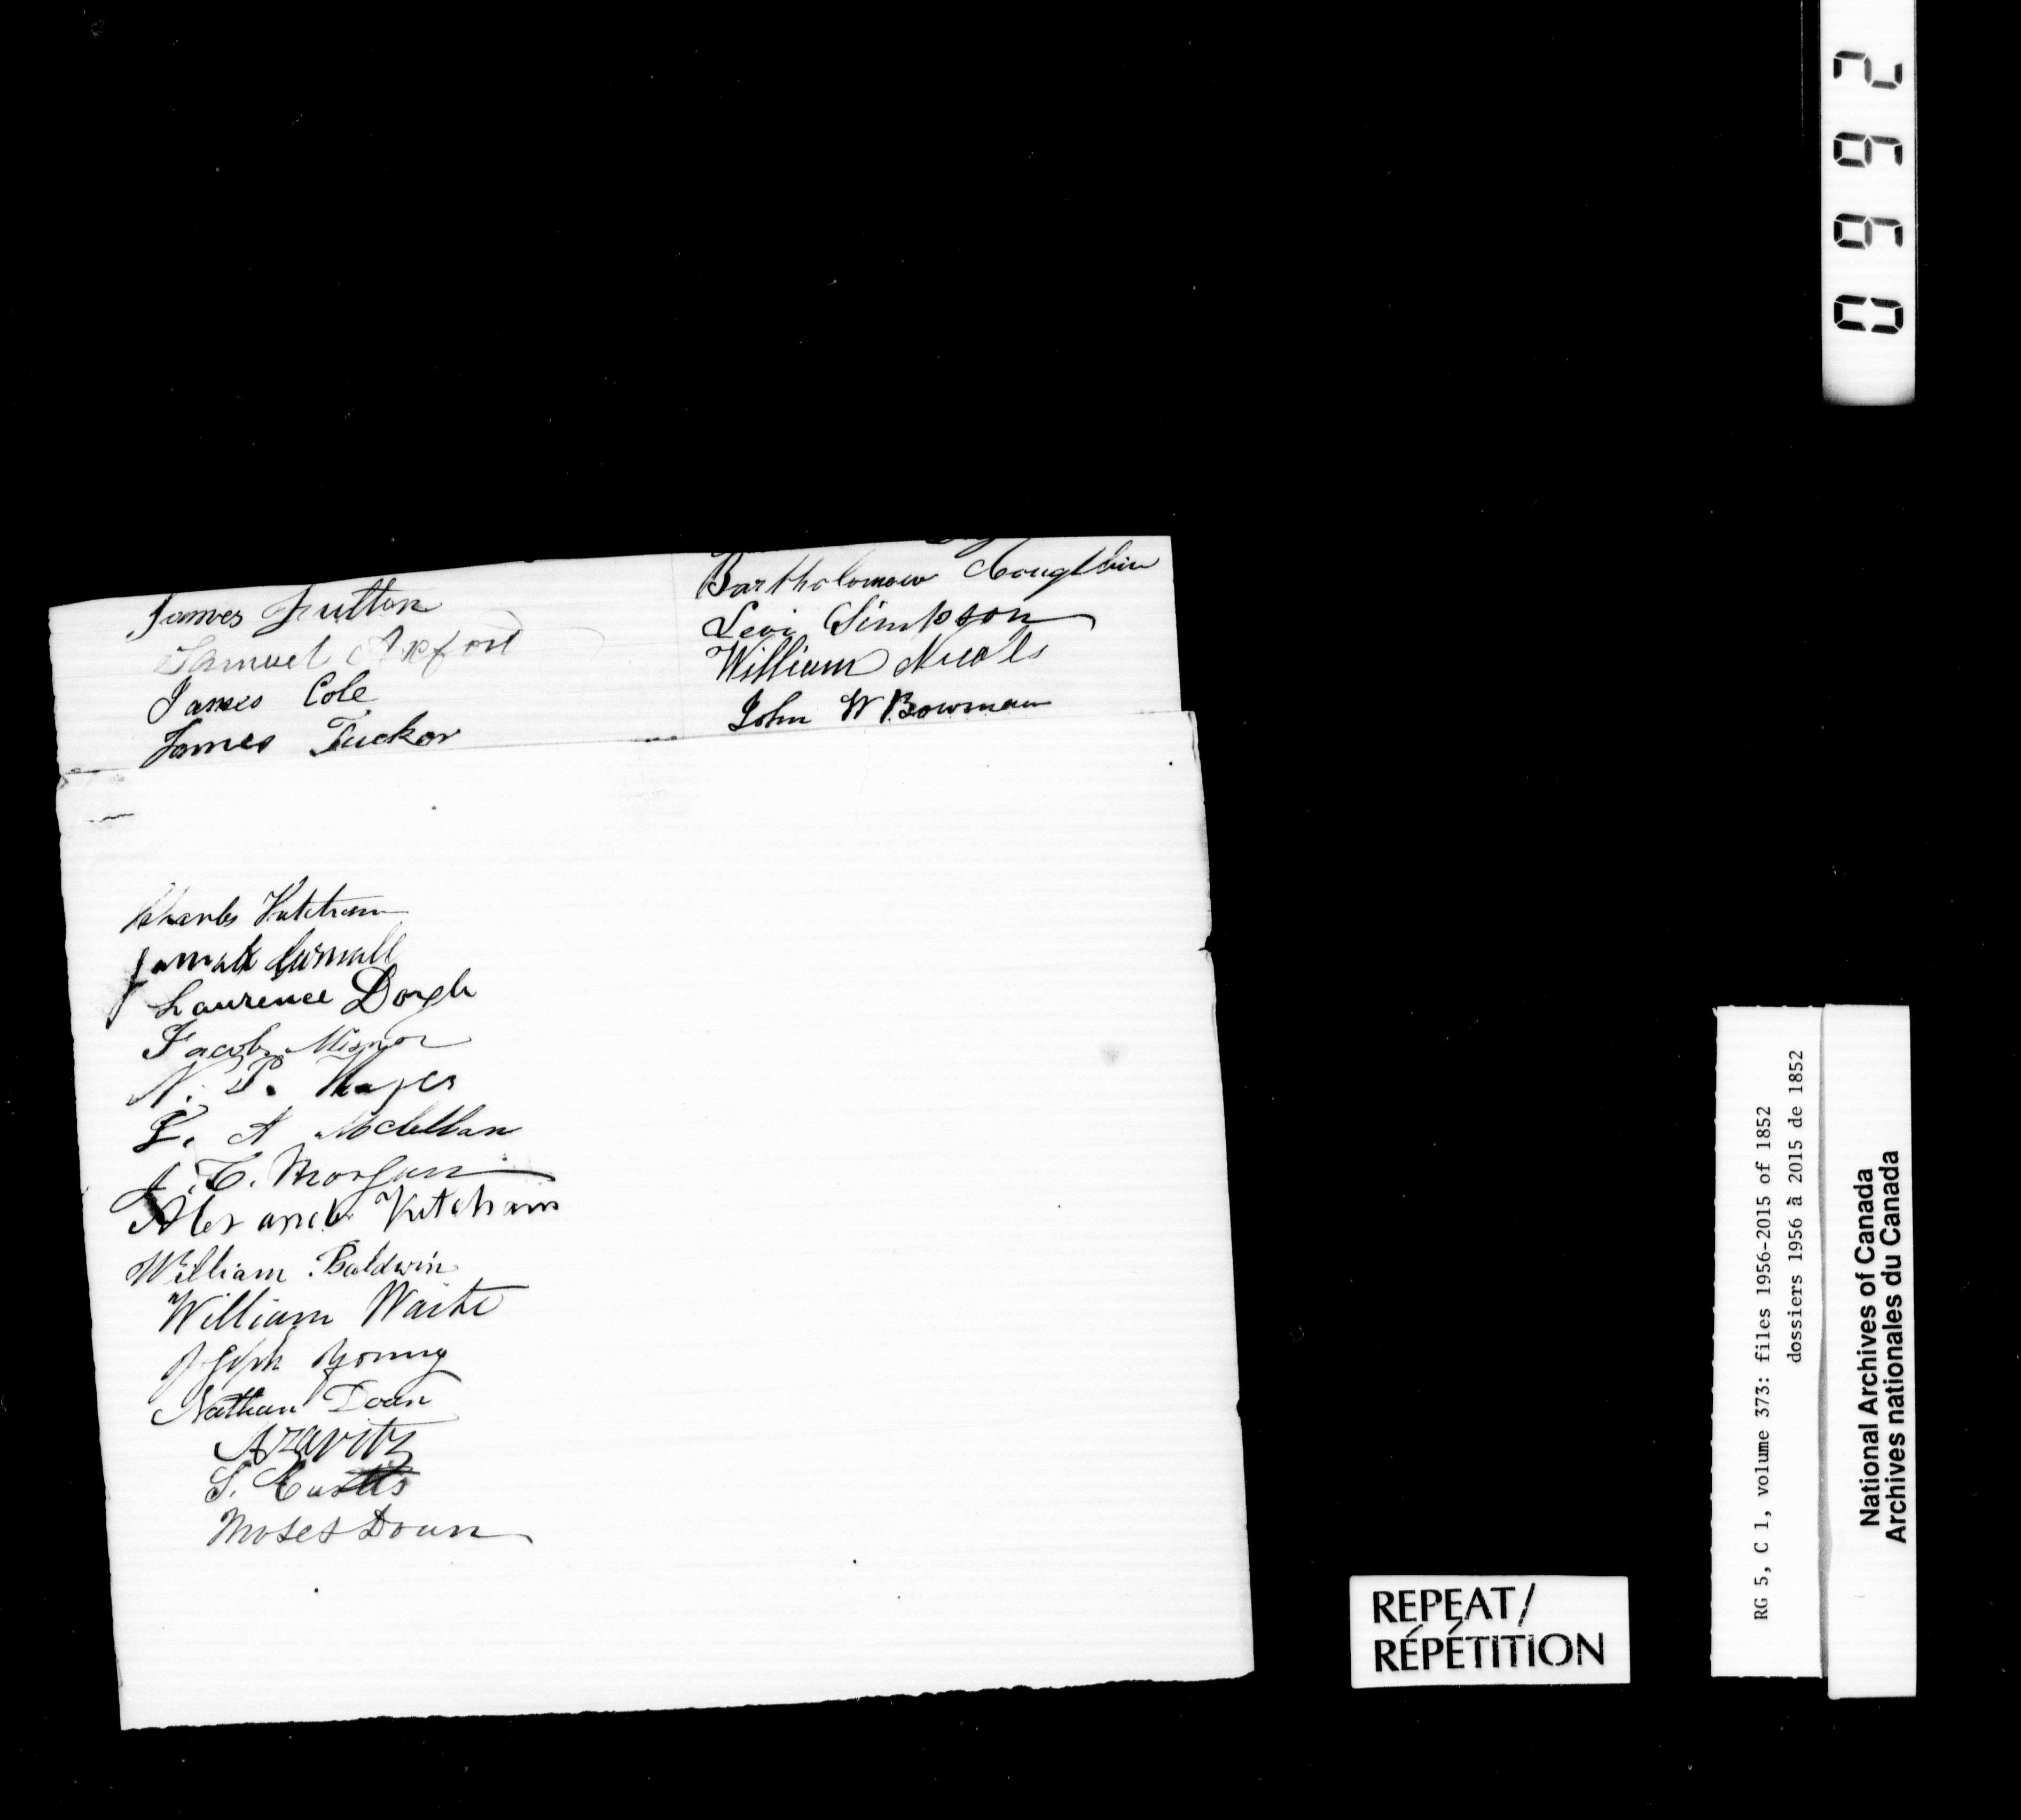 James Fulton
Samuel Axford
James Cole
James Tucker
Bartholomew Coughlin
Levi Simpson
William Nicals
John W Bowman
Charles Ketcham
Laurence Doyle
Jacob Misner
N. P. Hayes
L. A Mclellan
J. C. Morgan
Alexander Ketcham
William Baldwin
William Waite
Joseph Young
Nathan Doan
A Zavitz
S. Curtis
Moses Doan
2660
REPEAT/
RÉPÉTITION
RG 5, C 1, volume 373: files 1956-2015 of 1852
dossiers 1956 à 2015 de 1852
National Archives of Canada
Archives nationales du Canada